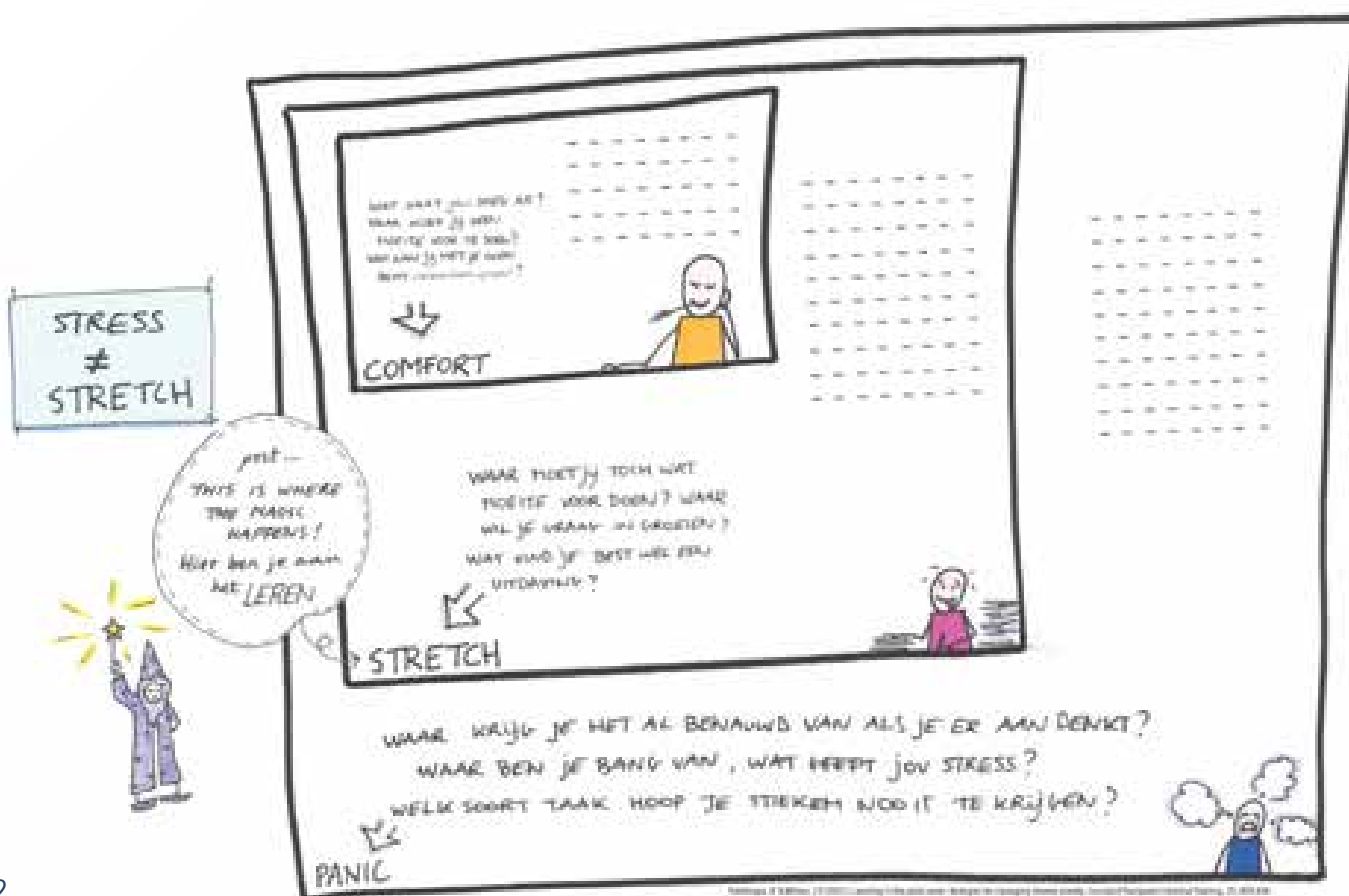 STRESS
≠
STRETCH
psst...
THIS IS WHERE
THE MAGIC
HAPPENS!
Hier ben je aan
het LEREN
WAT GAAT JOU GOED AF?
WAAR MOET jij GEEN
MOEITE VOOR TE DOEN?
WAT KAN jij MET JE OGEN
COMFORT
WAAR MOET jij TOCH WAT
MOEITE VOOR DOEN? WAAR
WIL JE GRAAG IN GROEIEN?
WAT VIND JE BEST WEL EEN
UITDAGING?
STRETCH
WAAR KRIJG JE HET AL BENAUWD VAN ALS JE ER AAN DENKT?
WAAR BEN JE BANG VAN, WAT GEEFT jou STRESS?
WELK SOORT TAAK HOOP JE STIEKEM NOOIT TE KRIJGEN?
PANIC